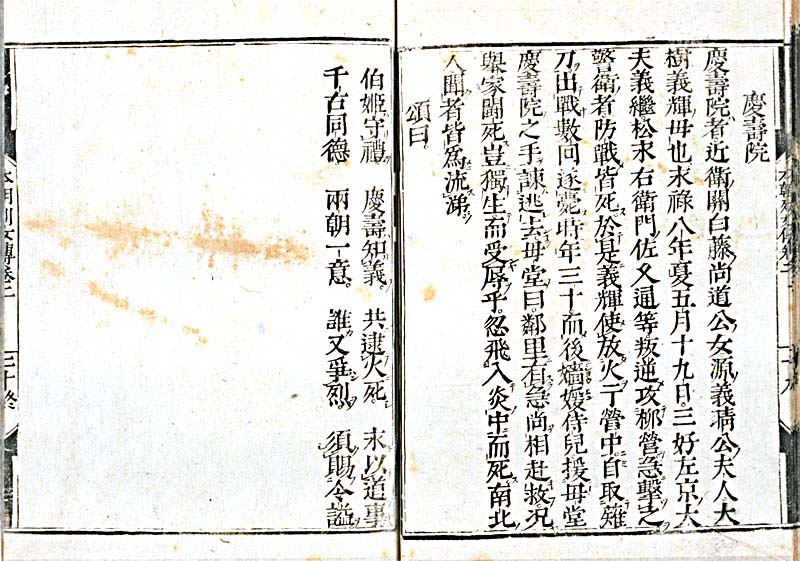 慶壽院
慶壽院者近衛關白藤尚道公女源義晴公夫人大
樹義輝母也永祿八年夏五月十九日三好左京大
夫義繼松永右衛門佐久通等叛逆攻柳營急擊之
警衛者防戰皆死於是義輝使放火于營中自取薙
刀出戰數回遂薨時年三十而後嬙媛侍兒援母堂
慶壽院之手諫逃去母堂曰鄰里有急尚相赴救况
擧家鬪死豈獨生而受辱乎忽飛入炎中而死南北
人聞者皆爲流涕
頌曰
伯姬守禮 慶壽知義 共逮火死 永以道事
千古同德 兩朝一意 誰又爭烈 須賜令謚
本朝列女傳卷二 三十終